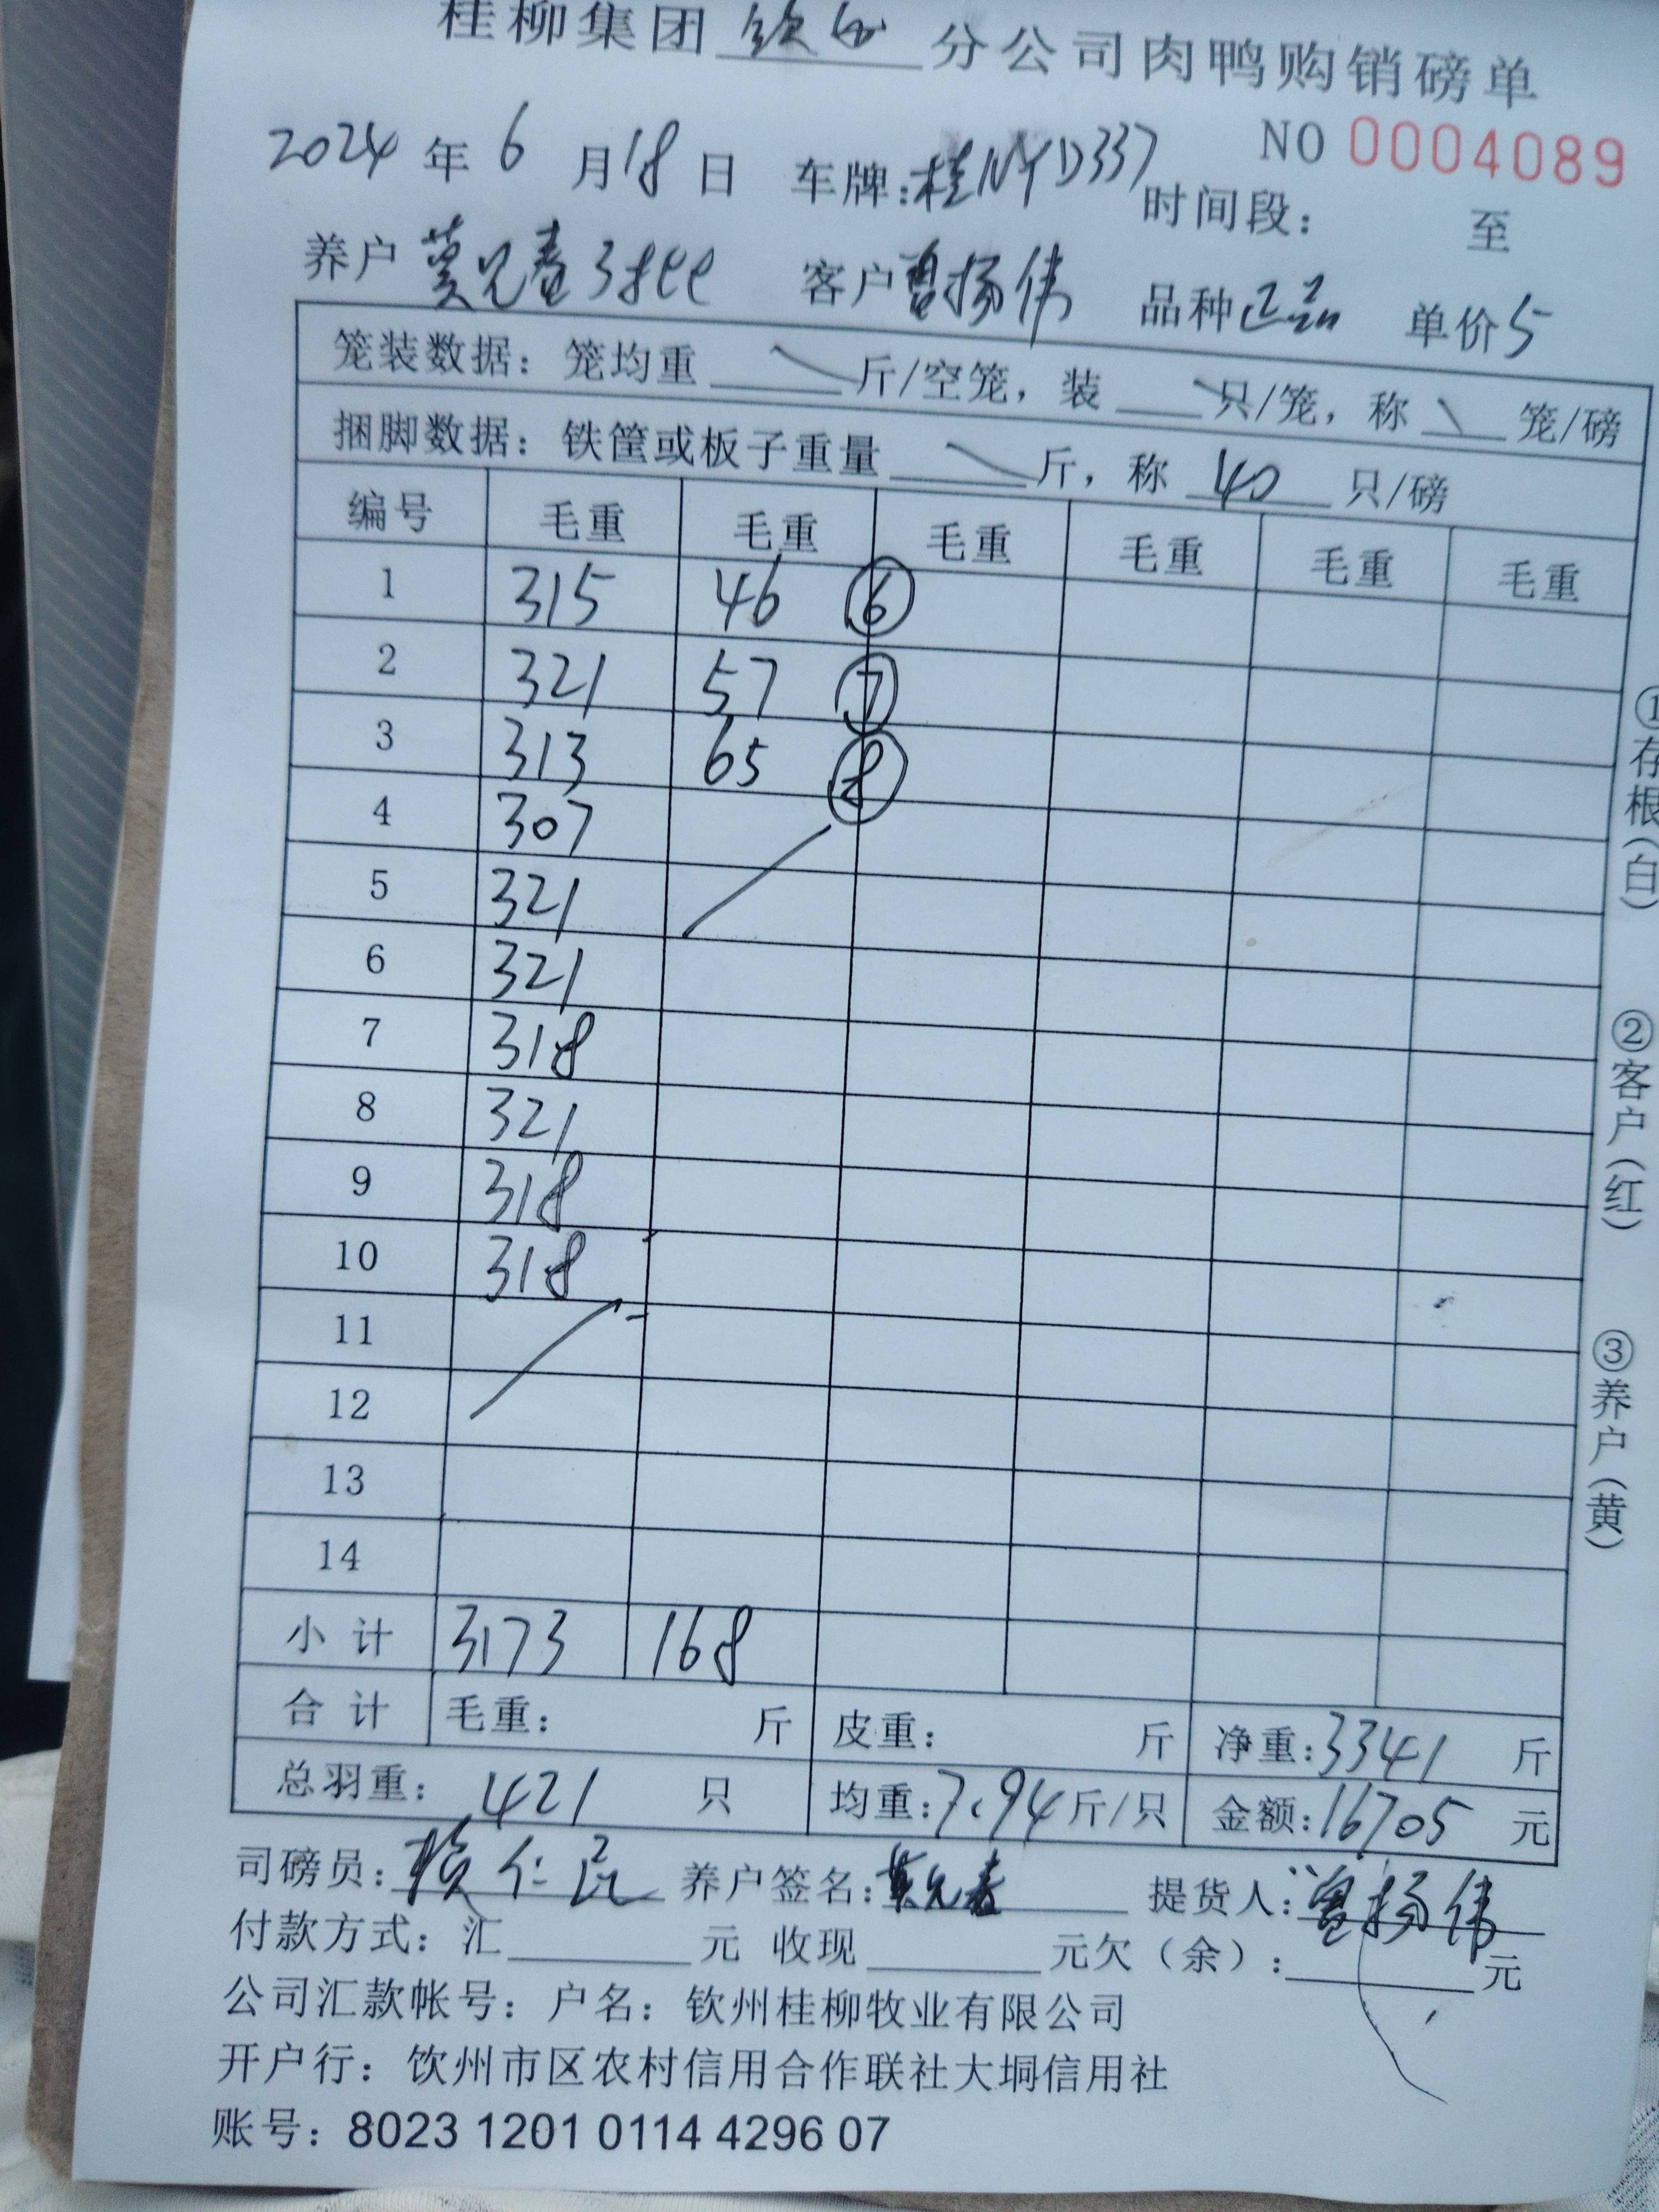 桂柳集团 钦州 分公司肉鸭购销磅单
NO 0004089
2024 年 6 月 18 日 车牌:桂NYD337 时间段: 至
养户 莫兄春 客户 曾扬伟 品种 正品 单价 5
笼装数据: 笼均重 斤/空笼, 装 只/笼, 称 笼/磅
捆脚数据: 铁筐或板子重量 斤, 称 40 只/磅
编号 毛重 毛重 毛重 毛重 毛重 毛重
1 315 46 ⑥
2 321 57 ⑦
3 313 65 ⑧
4 307
5 321
6 321
7 318
8 321
9 318
10 318
11
12
13
14
小 计 3173 168
合 计 毛重: 斤 皮重: 斤 净重:3341 斤
总羽重: 421 只 均重:7.94斤/只 金额:16705 元
司磅员: 养户签名:莫兄春 提货人:曾扬伟
付款方式: 汇 元 收现 元欠(余): 元
公司汇款帐号: 户名: 钦州桂柳牧业有限公司
开户行: 钦州市区农村信用合作联社大垌信用社
账号: 8023 1201 0114 4296 07
①存根(白)
②客户(红)
③养户(黄)